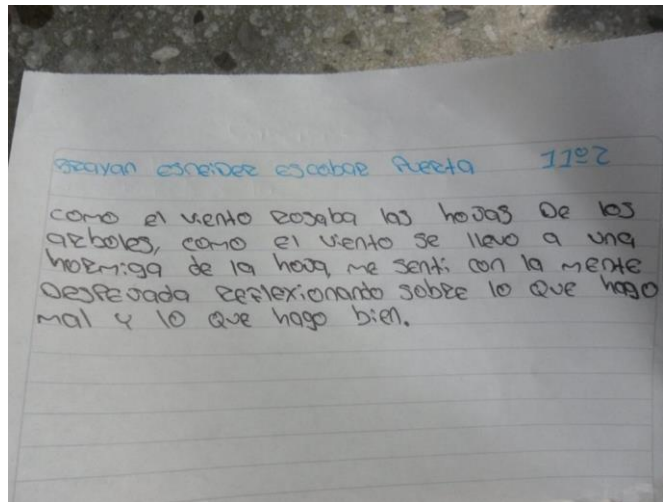 Brayan esneider escobar Puerta 11º2
como el viento rosaba las hojas De los
arboles, como el viento se llevo a una
hormiga de la hoja me senti con la mente
Despejada reflexionando sobre lo que hago
mal y lo que hago bien.